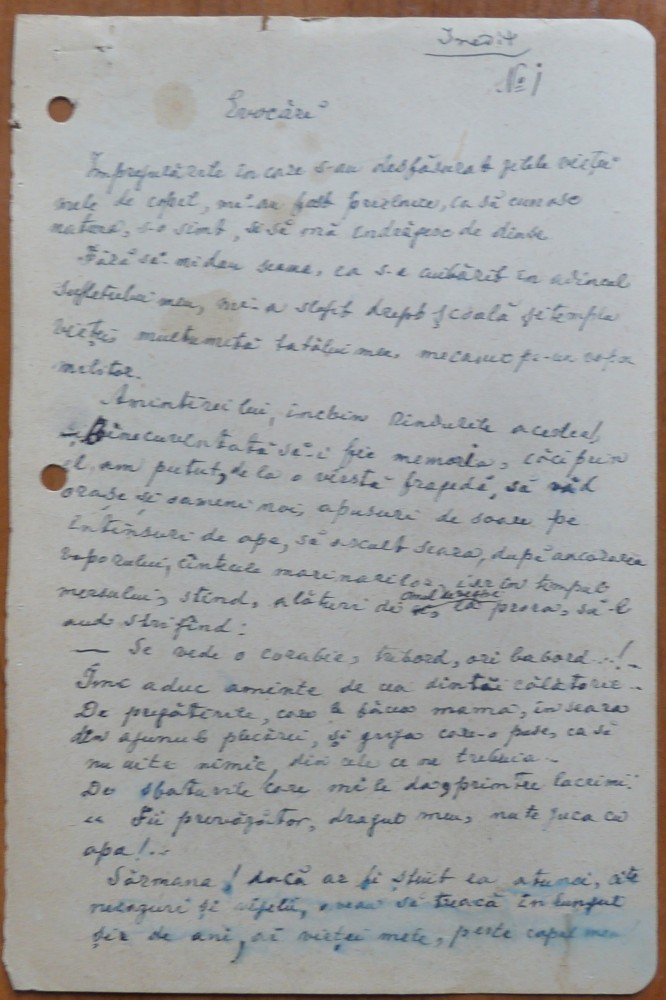 Inedit
№ 1
Evocări
Împrejurările în care s-au desfăsurat zilele vieței
mele de copil, mi-au fost prielnice, ca să cunosc
natura, s-o simt, si să mă îndrăgesc de dînsa
Fără să-mi dau seama, ea s-a cuibărit în adîncul
sufletului meu, mi-a slujit drept școală și templu
vieței, multumită tatălui meu, mecanic pe-un vapor
militar.
Amintirei lui, închin rîndurile acestea!
Binecuvîntată să-i fie memoria, căci prin
el am putut, de la o vîrstă fragedă, să văd
orașe și oameni noi, apusuri de soare pe
întinsuri de ape, să ascult seara, după ancorarea
vaporului, cîntecele marinarilor, iar în timpul
mersului, stînd, alături de la prora, să-l
aud strigînd:
— Se vede o corabie, tribord, ori babord..!—
Îmi aduc aminte de cea dintăi călătorie..
De pregătirile, care le făcea mama, în seara
din ajunul plecării, și grija care-o pase, ca să
nu uite nimic, din cele ce ne trebuia..
De sfaturile care mi le da, printre lacrimi:
„ Fii prevăzător, dragul meu, nu te juca cu
apa!..
Sărmana! dacă ar fi știut ea atunci, cîte
neguri și vijelii, aveau să treacă în lungul
șir de ani, ai vieței mele, peste capul meu